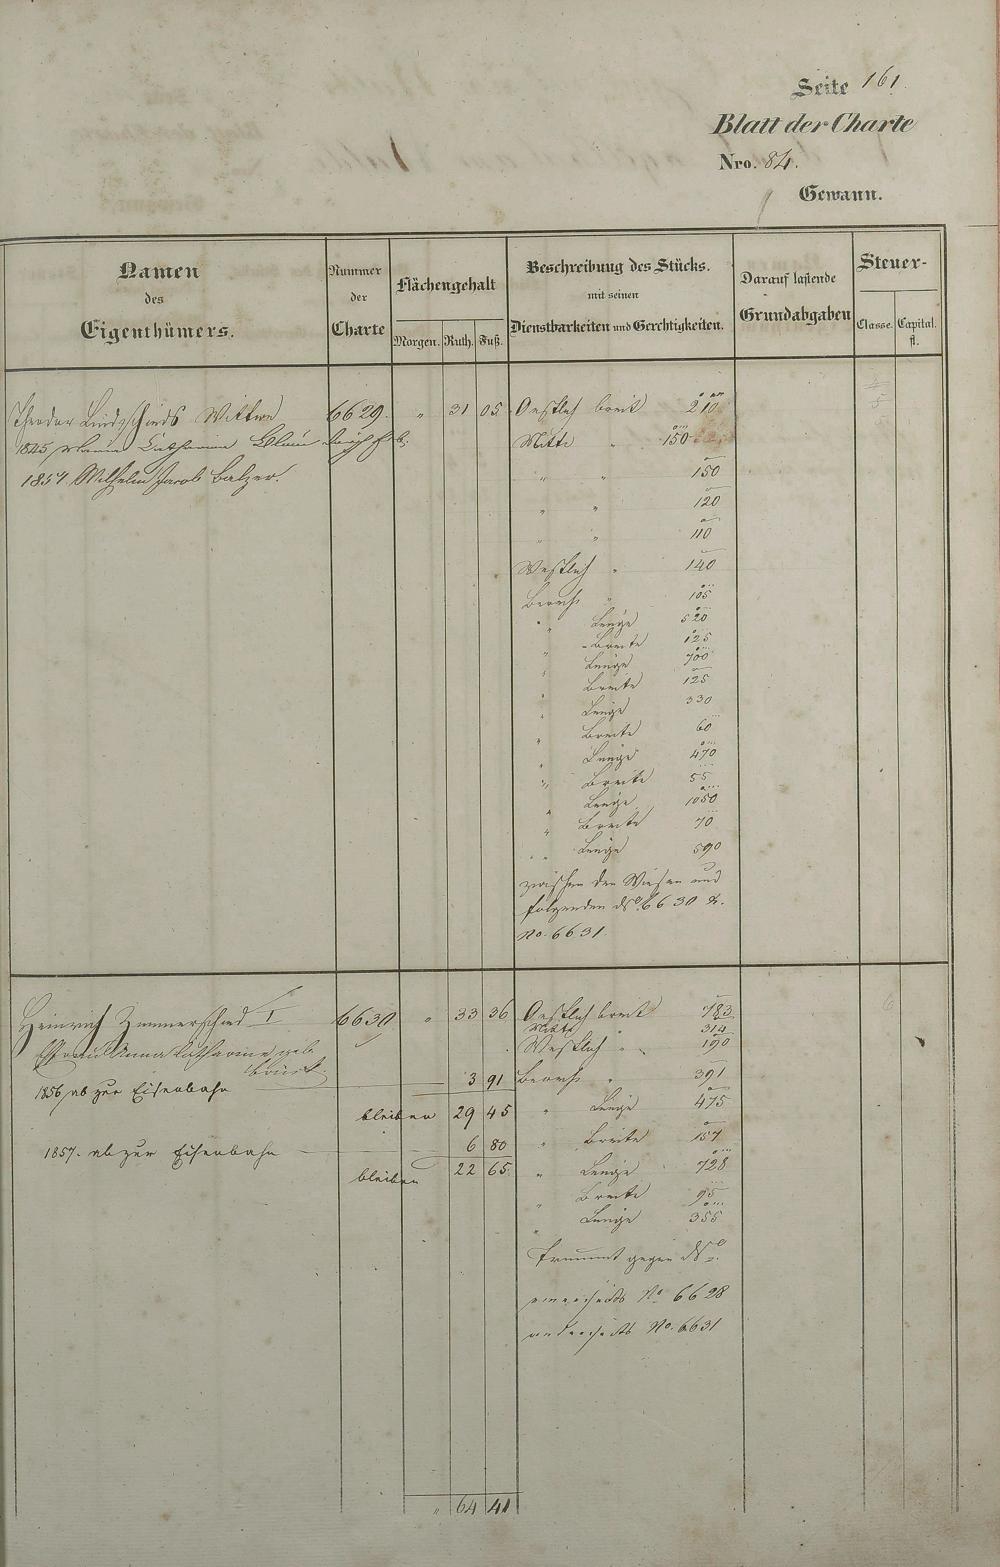 Seite 161.
Blatt der Charte
Nro. 84.
Gewann.
Namen
des
Eigenthümers.
Nummer
der
Charte
Flächengehalt
Morgen. Ruth. Fuß.
Beschreibung des Stücks.
mit seinen
Dienstbarkeiten und Gerechtigkeiten.
Darauf lastende
Grundabgaben
Steuer-
Classe. Capital.
fl.
Theodor Wittwe 6629. " 31 05 Oestlich breit 210
1845, Maria Catharina Mitte " 150
1857 Wilhelm Jacob Balzer. " " 150
" " 120
" " 110
Westlich " 140
" 105
" Länge 520
" Breite 125
" Länge 700
" Breite 125
" Länge 330
" Breite 60
" Länge 470
" Breite 55
" Länge 1050
" Breite 70
" Länge 590
zwischen den Wiesen und
folgenden 6630 &.
No. 6631.
Heinrich Zimmerschied I 6630 " 33 36 Oestlich breit 783
Mitte 314
Ehefrau Anna Catharina geb. Westlich " 190
1856, ab zur Eisenbahn 3 91 " 391
bleiben 29 45 " Länge 475
6 80 " Breite 157
1857. ab zur Eisenbahn
bleiben 22 65. " Länge 728
" Breite 95
" Länge 355
gegen
einerseits No. 6628
anderseits No. 6631
" 64 41